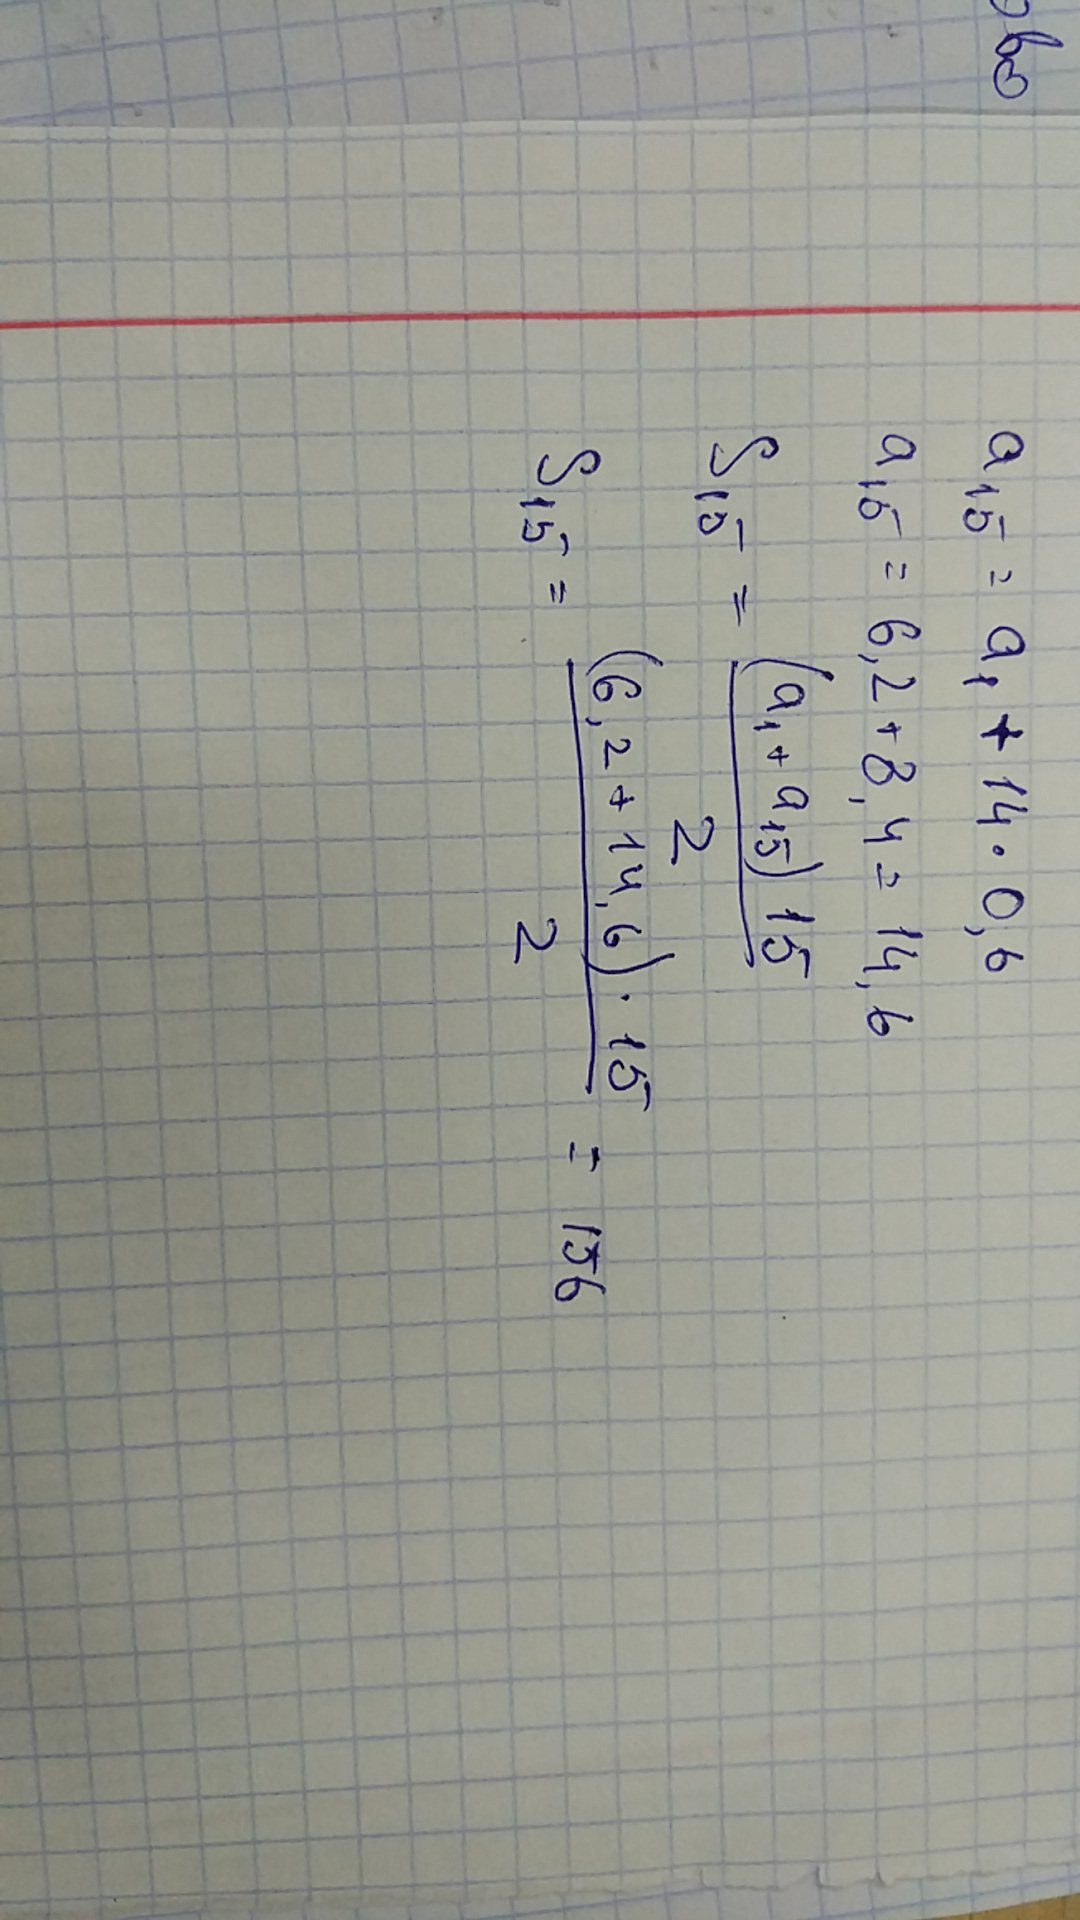 a₁₅ = a₁ + 14 · 0,6
a₁₅ = 6,2 + 8,4 = 14,6
S₁₅ = (a₁ + a₁₅) 15 / 2
S₁₅ = (6,2 + 14,6) · 15 / 2 = 156